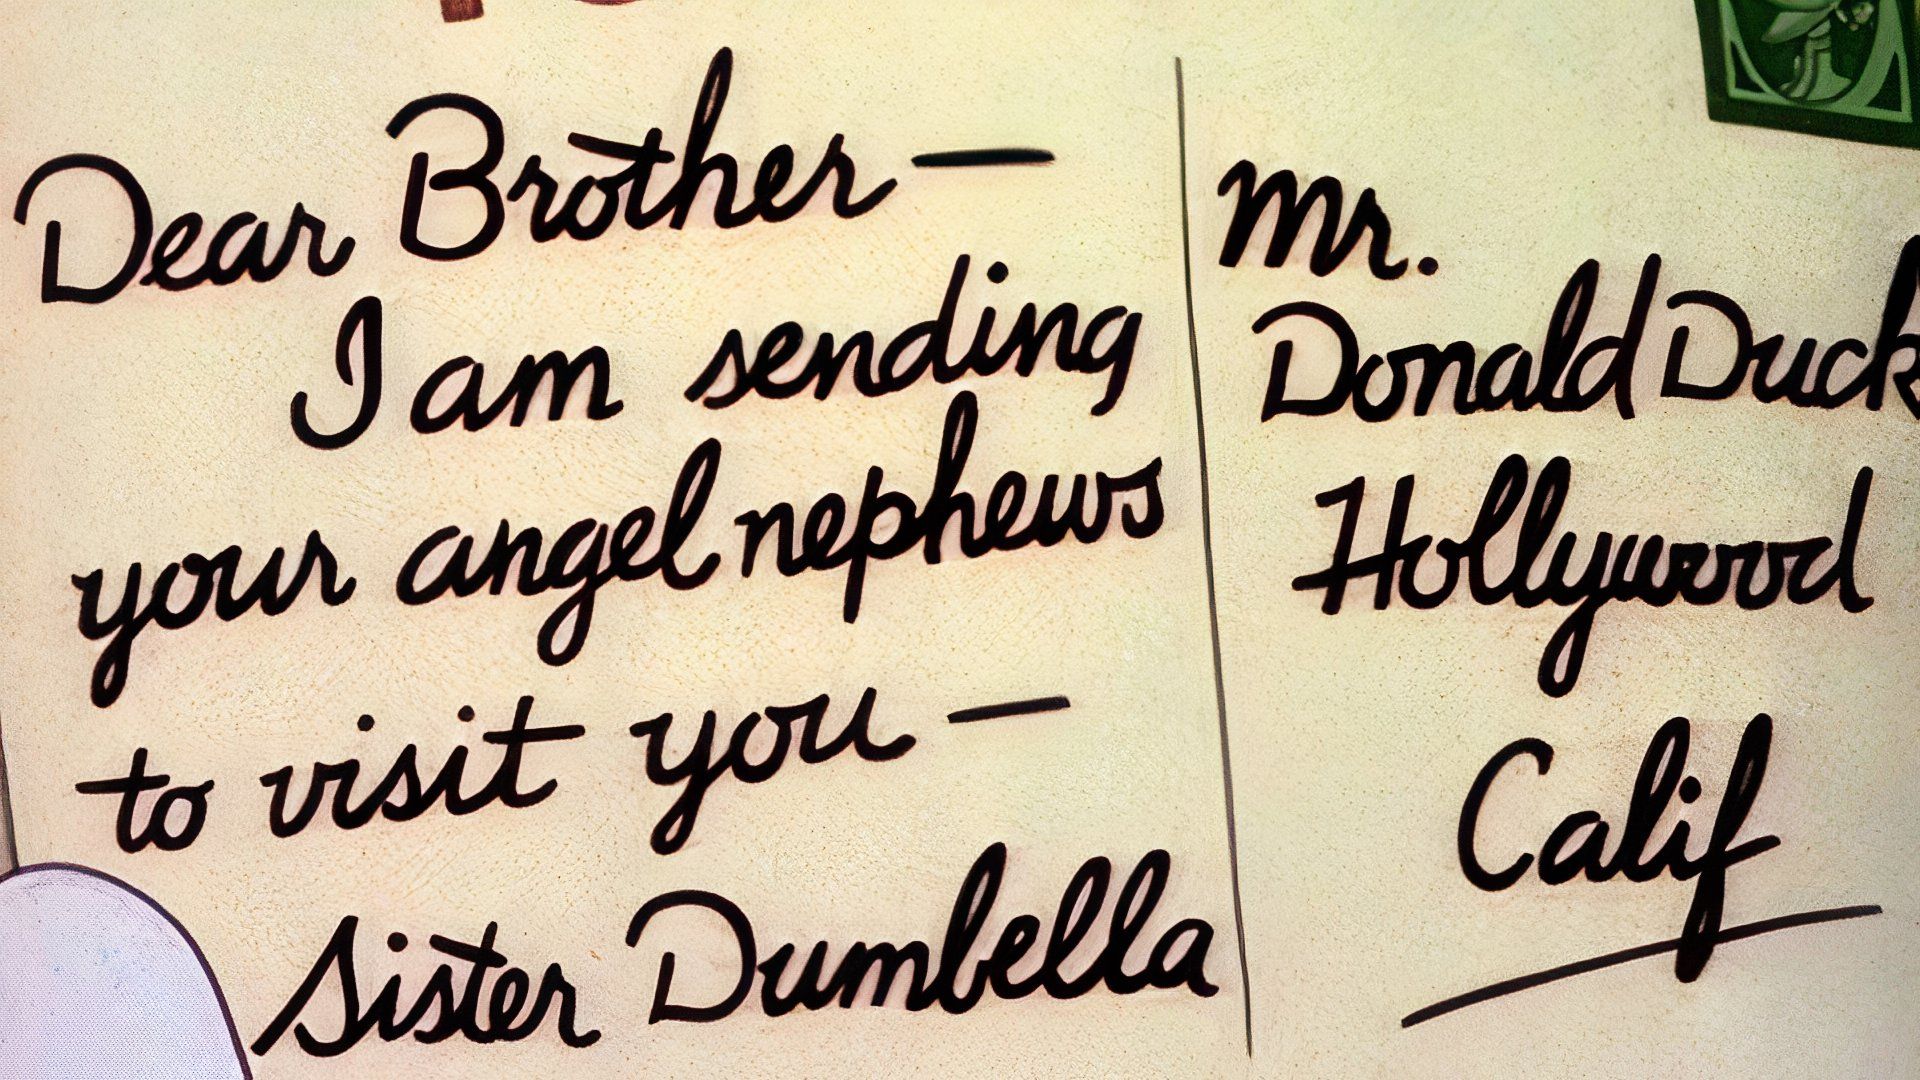 Dear Brother —
I am sending
your angel nephews
to visit you —
Sister Dumbella
Mr.
Donald Duck
Hollywood
Calif